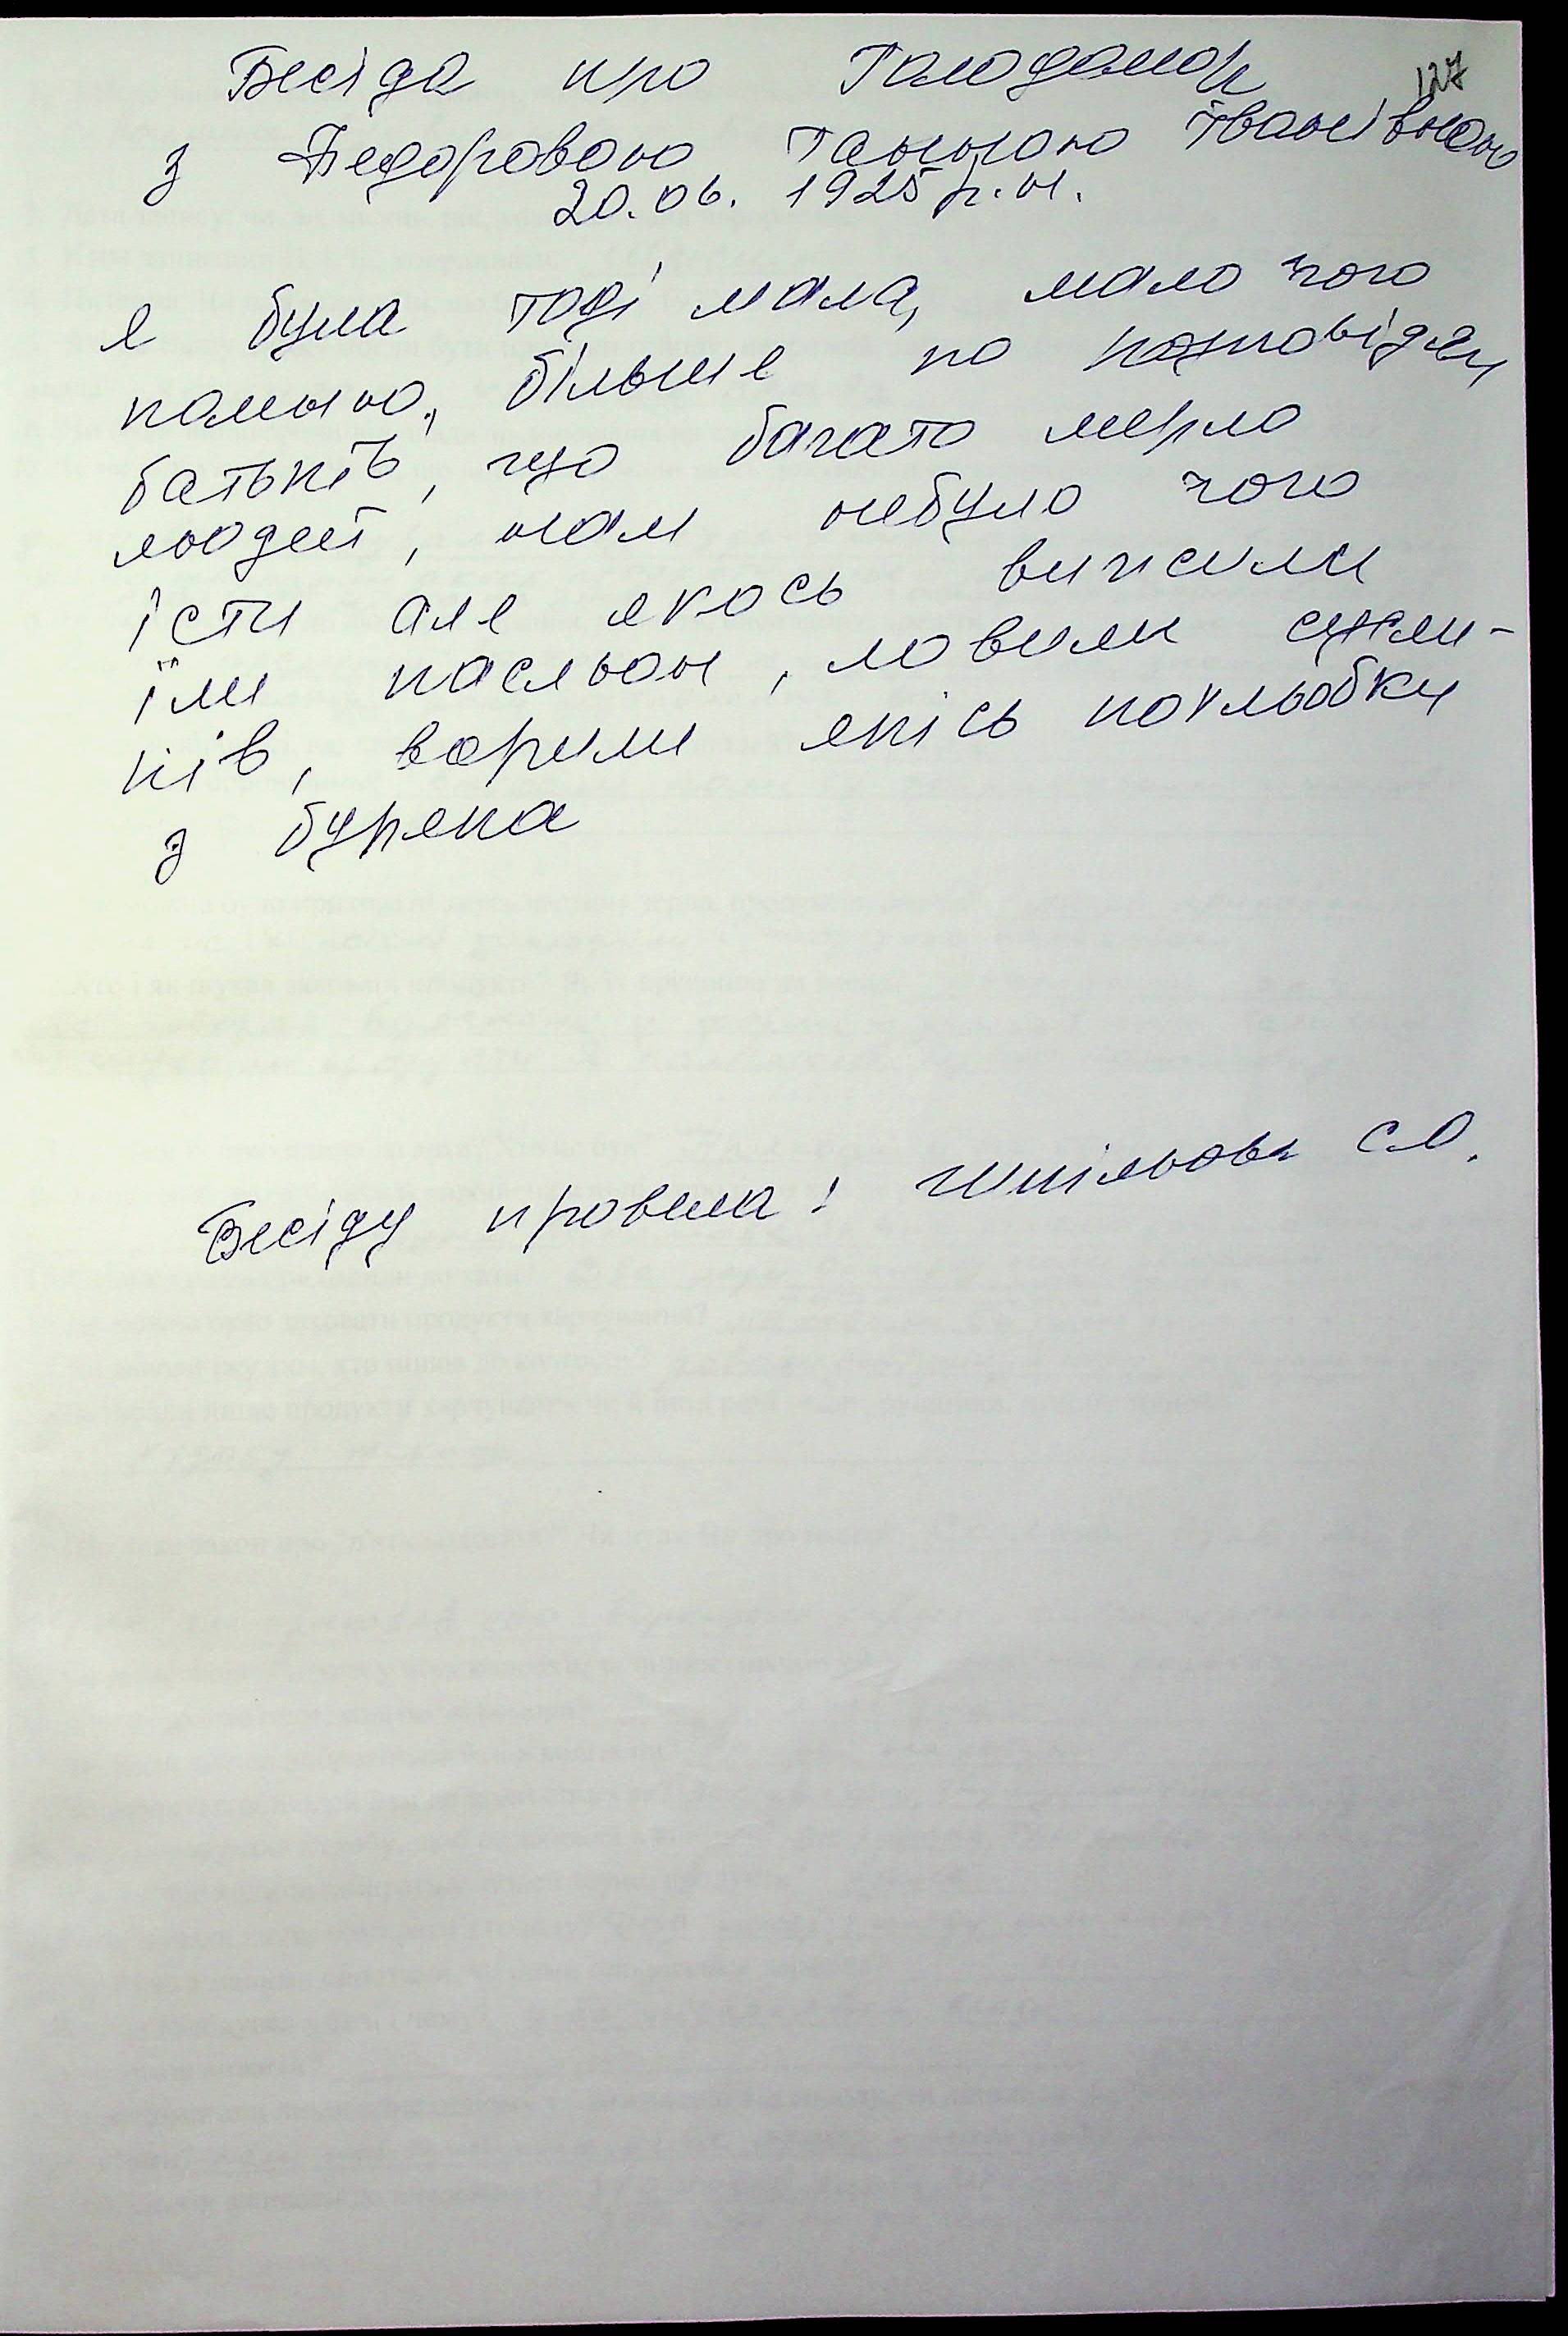 127
Бесіда про Голодомор
з Федоровою Ганною Іванівною
20.06.1925 р.н.
я була тоді мала, мало чого
помню, більше по розповідям
батьків, що багато мерло
людей, нам небуло чого
їсти але якось вижили
їли пасльон, ловили сусли-
ків, варили якісь похльобки
з буряка
Бесіду провела: Шпільова С.О.